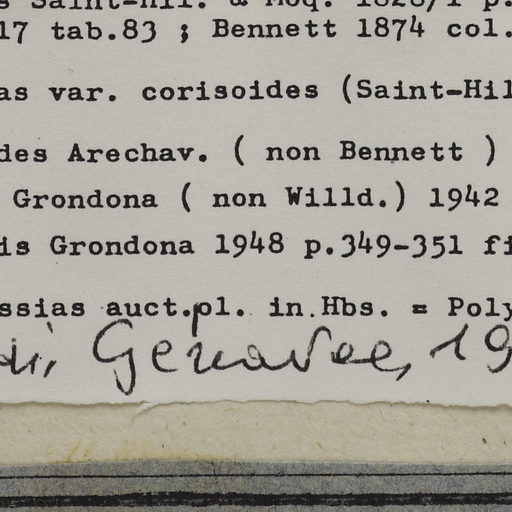 s Saint-Hil. & Moq. 1828/1 p.
17 tab.83 ; Bennett 1874 col.
as var. corisoides (Saint-Hil
des Arechav. ( non Bennett )
Grondona ( non Willd.) 1942
is Grondona 1948 p.349-351 fi
ssias auct.pl. in Hbs. = Poly
Genavae, 19